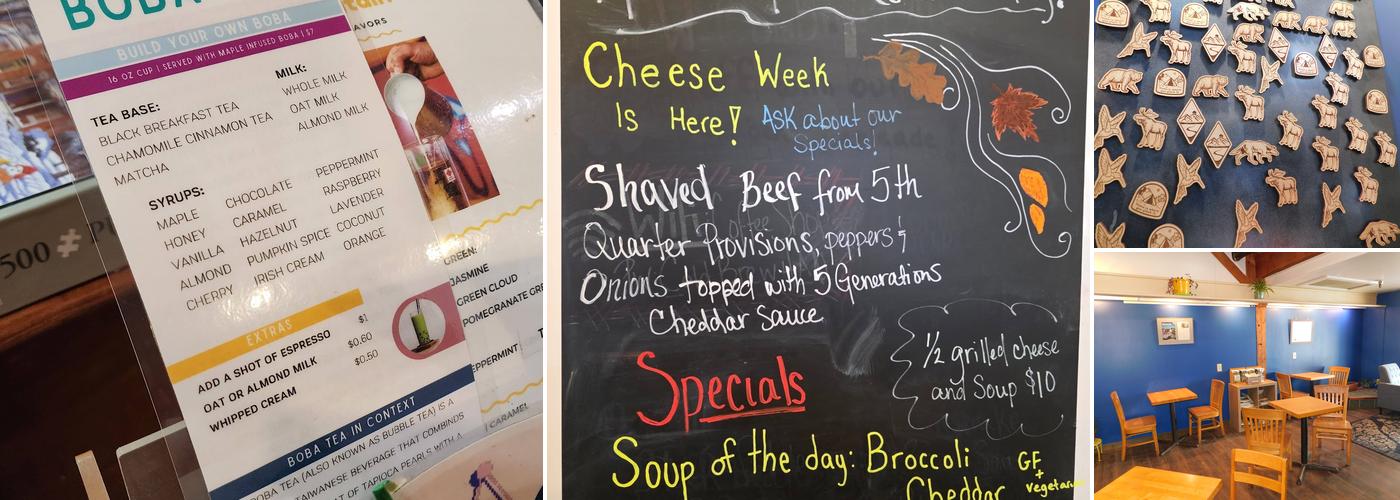 BOBA
BUILD YOUR OWN BOBA
16 OZ CUP | SERVED WITH MAPLE INFUSED BOBA | $7
TEA BASE:
BLACK BREAKFAST TEA
CHAMOMILE CINNAMON TEA
MATCHA
MILK:
WHOLE MILK
OAT MILK
ALMOND MILK
SYRUPS:
MAPLE
HONEY
VANILLA
ALMOND
CHERRY
CHOCOLATE
CARAMEL
HAZELNUT
PUMPKIN SPICE
IRISH CREAM
PEPPERMINT
RASPBERRY
LAVENDER
COCONUT
ORANGE
EXTRAS
ADD A SHOT OF ESPRESSO $1
OAT OR ALMOND MILK $0.60
WHIPPED CREAM $0.50
BOBA TEA IN CONTEXT
BOBA TEA (ALSO KNOWN AS BUBBLE TEA) IS A
TAIWANESE BEVERAGE THAT COMBINES
OF TAPIOCA PEARLS WITH A
AVORS
GREEN:
JASMINE
GREEN CLOUD
POMEGRANATE GRE
EPPERMINT
CARAMEL
500
Cheese Week
Is Here!
Ask about our
Specials!
Shaved Beef from 5th
Quarter Provisions, peppers &
Onions topped with 5 Generations
Cheddar Sauce
1/2 grilled cheese
and Soup $10
Specials
Soup of the day: Broccoli
Cheddar
GF
+
vegetarian